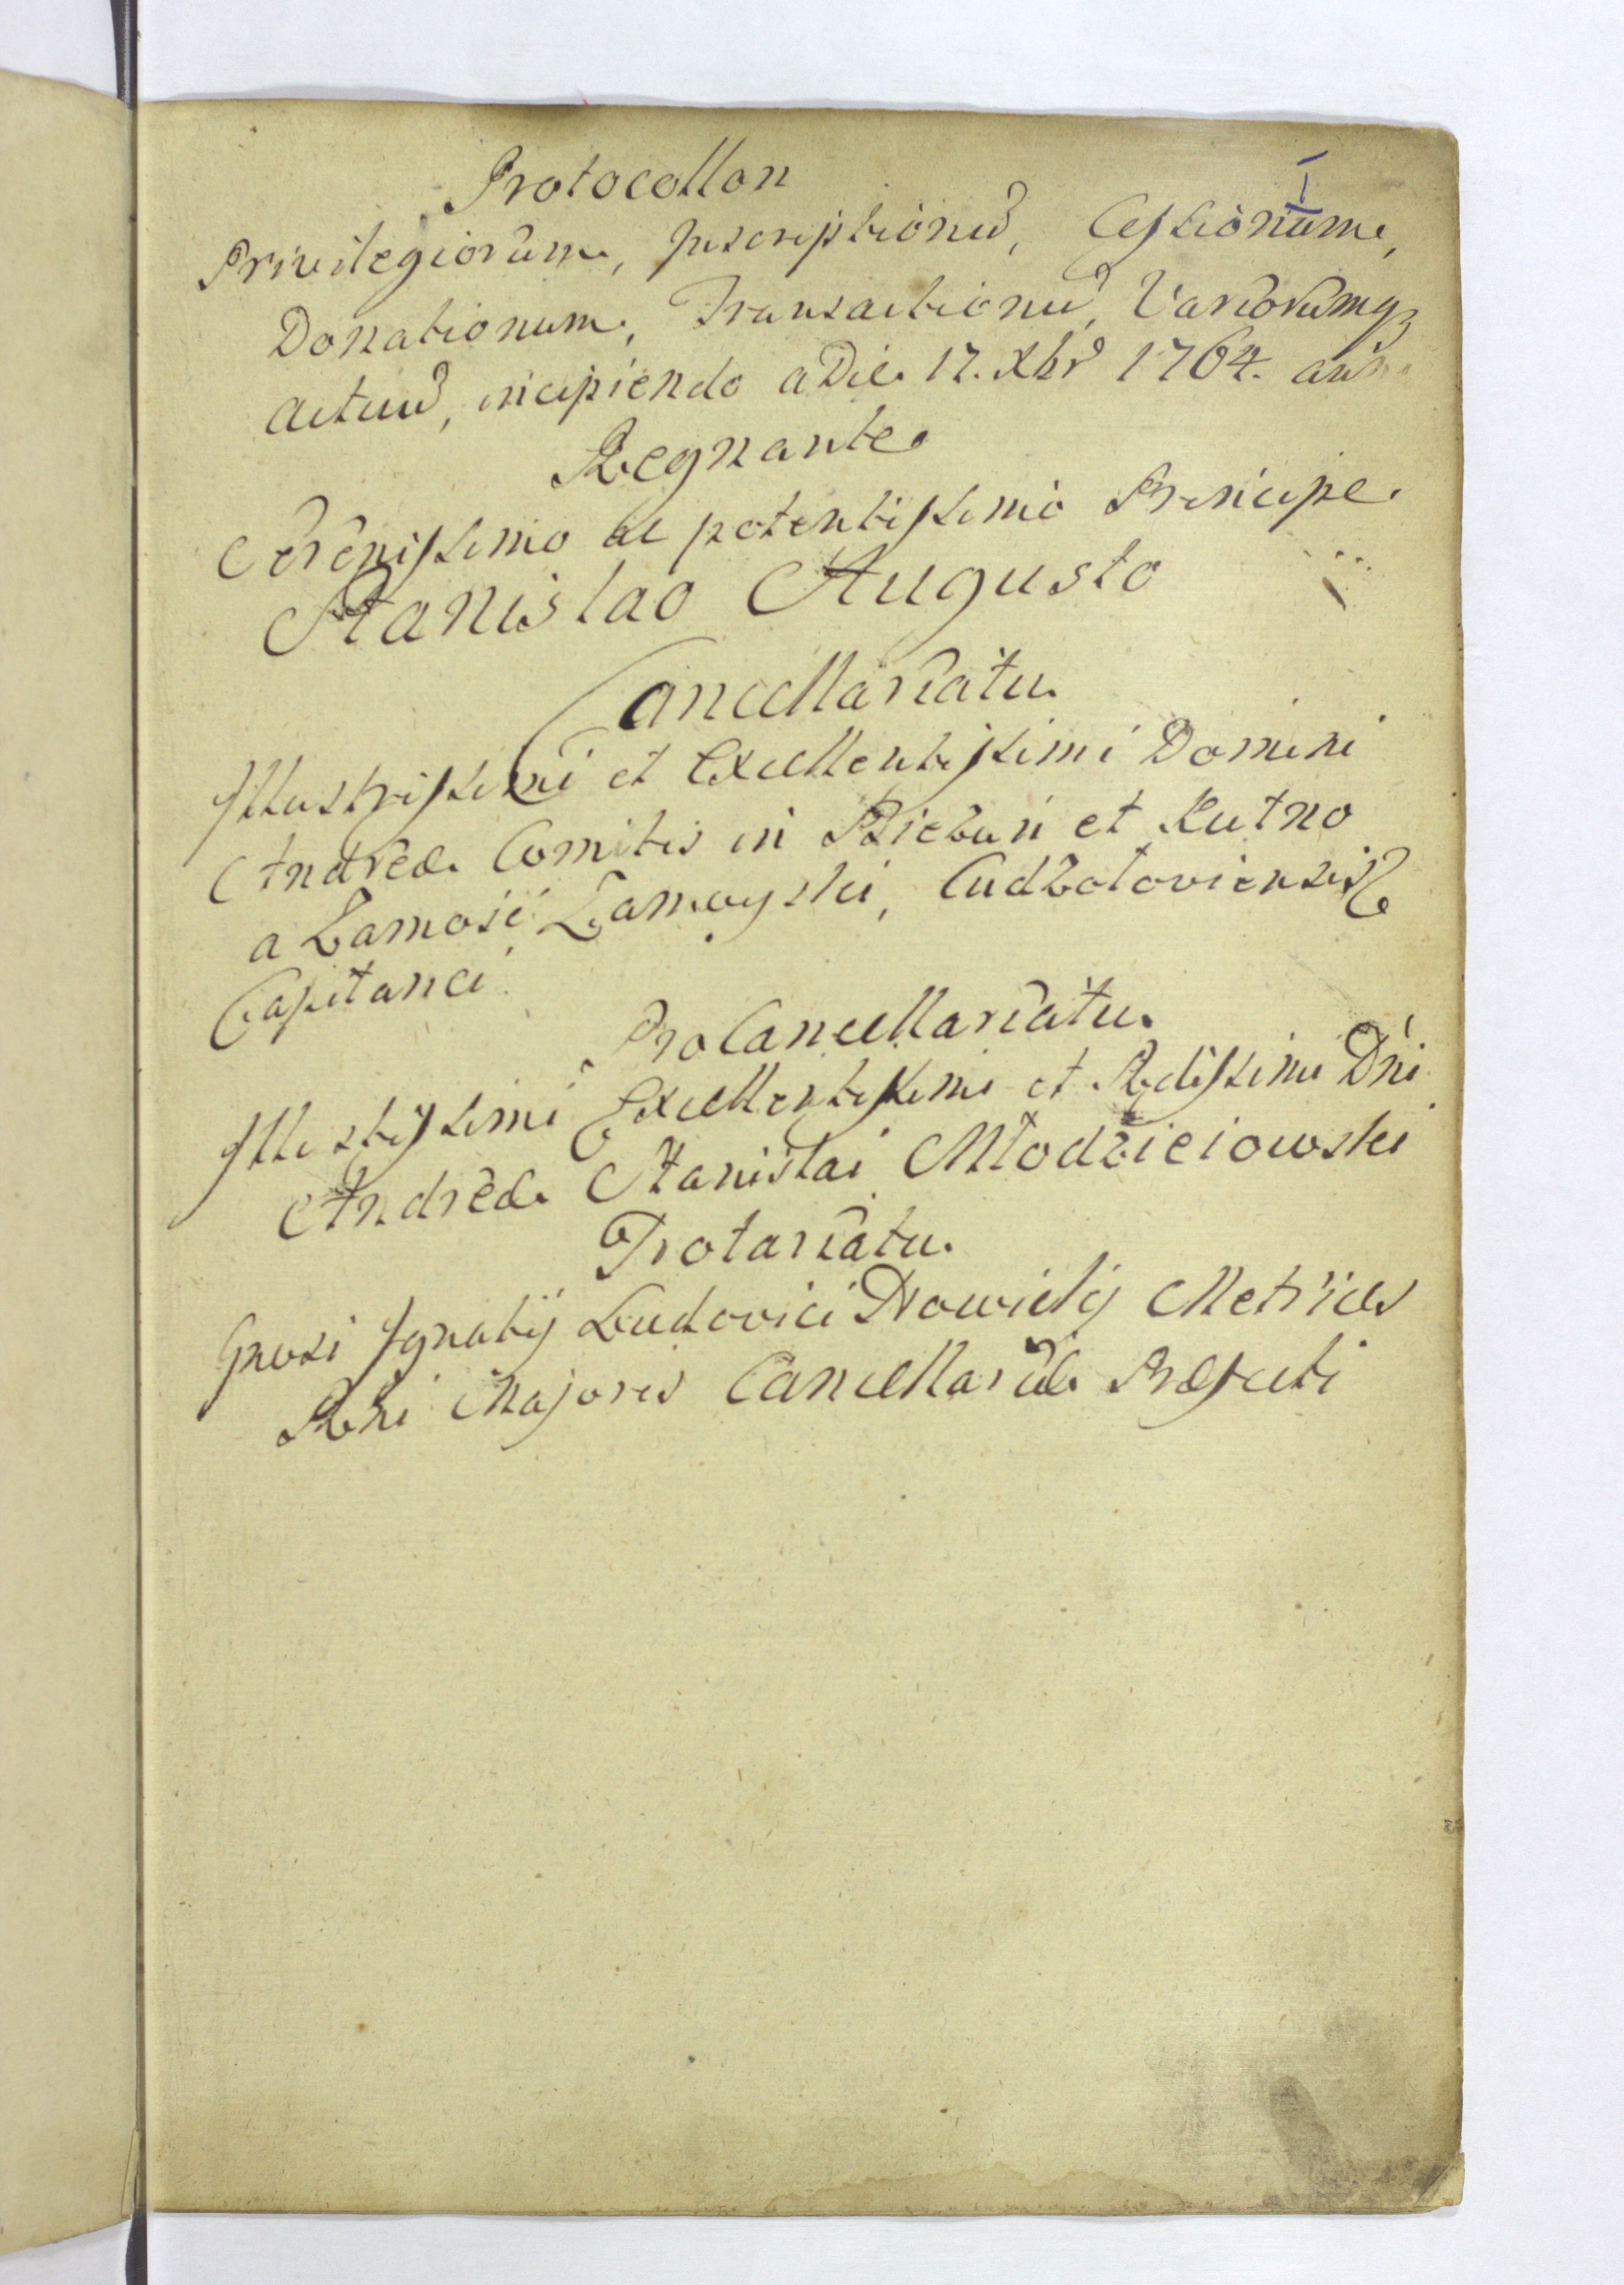 I
Protocollon
Privilegiorum, Inscriptionũ, Cessionum,
Donationum, Transactionũ, Variorumq3
actuũ, incipiendo a Die 17. Xbr 1764. ann
Regnante
Serenissimo ac potentissimo Principe
Stanislao Augusto
Cancellariatu
Illustrissimi et Excellentissimi Domini
Andreæ Comitis in et Kutno
a Zamość Zamoyski,
Capitanei
ProCancellariatu
Excellentissimi et Rdissimi Dñi
Andreæ Stanislai Młodzieiowski
Gnosi Ignatij Ludovici Nowicki Metrices
Rñi Majoris Cancellariæ Præfecti